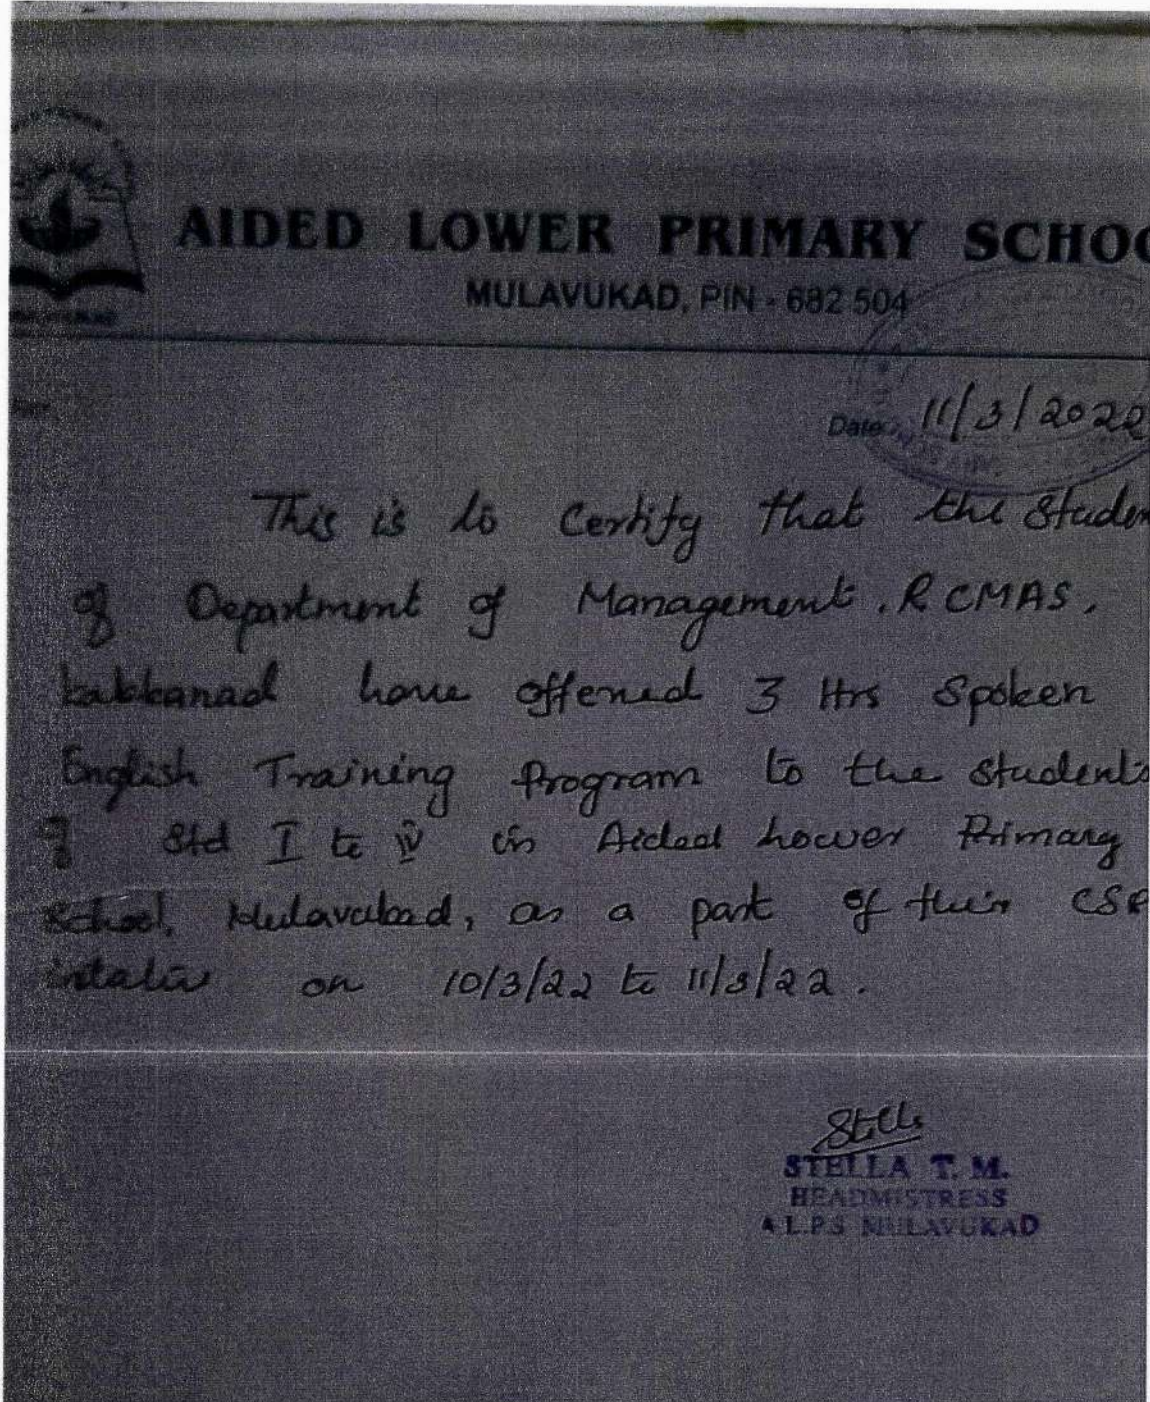 AIDED LOWER PRIMARY SCHOO
MULAVUKAD, PIN - 682 504
Date 11/3/2022
This is to Certify that the Studen
of Department of Management. RCMAS.
kakkanad have offered 3 Hrs Spoken
English Training Program to the students
of Std I to IV in Aided Lower Primary
School, Mulavukad, as a part of their CSR
on 10/3/22 to 11/3/22.
Stella
STELLA T. M.
HEADMISTRESS
A.L.P.S MULAVUKAD